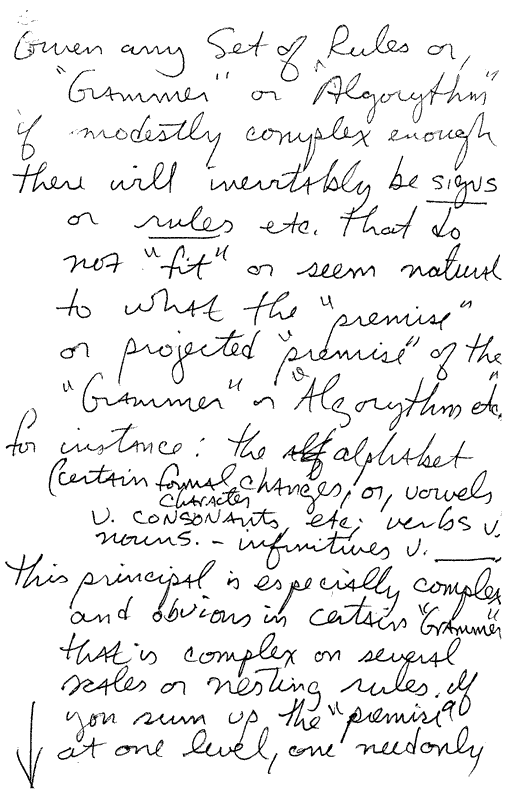 Given any Set of Rules or,
"Grammer" or "Algorythm"
if modestly complex enough
there will inevitably be signs
or rules etc. that do
not "fit" or seem natural
to what the "premise"
or projected "premise" of the
"Grammer" or "Algorythm" etc.
for instance: the alphabet
(certain formal changes, or, vowels
character
v. consonants, etc; verbs v.
nouns. - infinitives v. ____
This principal is especially complex
and obvious in certain "Grammer"
that is complex on several
scales or nesting rules. If
you sum up the "premise"
at one level, one needonly